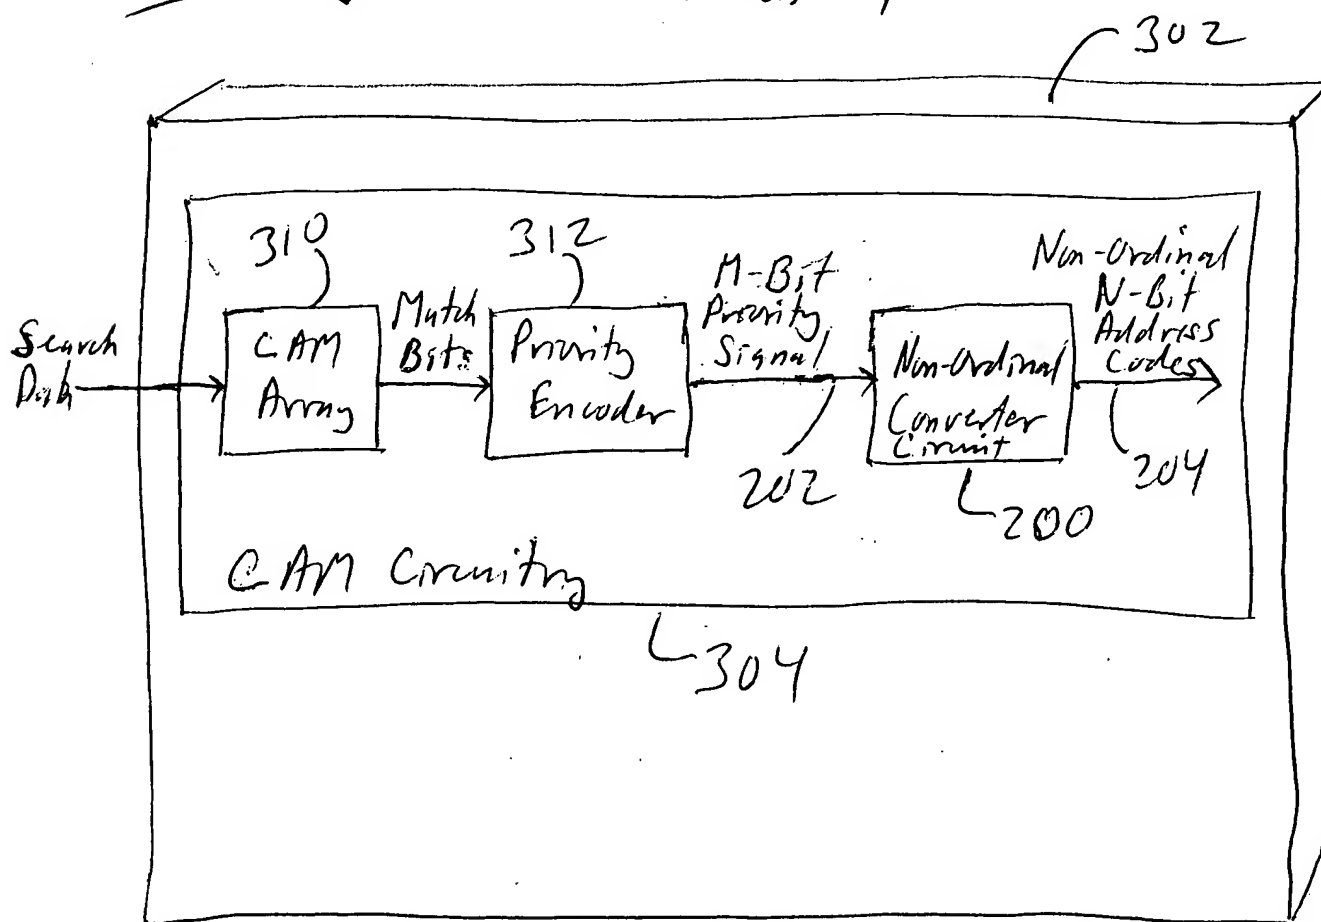 302
310
312
Search
Data
CAM
Array
Match
Bits
Priority
Encoder
M-Bit
Priority
Signal
Non-Ordinal
Converter
Circuit
Non-Ordinal
N-Bit
Address
Codes
202
200
204
CAM Circuitry
304